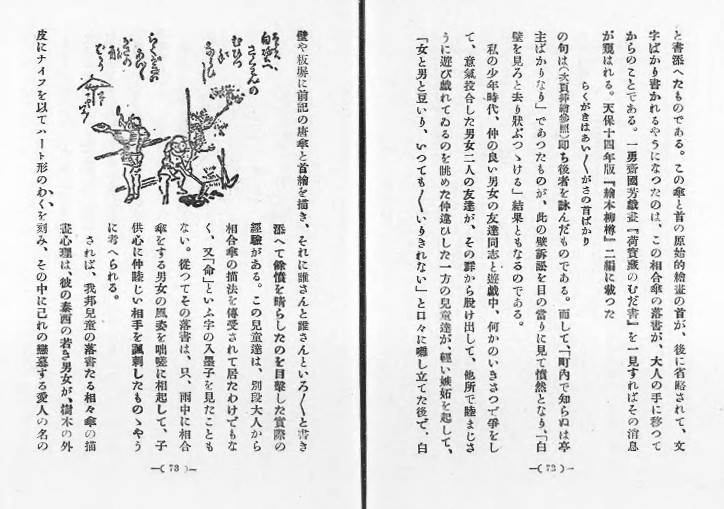 と書添へたものである。この傘と首の原始的繪畫の首が、後に省略されて、文
字ばかり書かれるやうになつたのは、この相合傘の落書が、大人の手に移つて
からのことである。一勇齋國芳戲畫『荷寶藏のむだ書』を一見すればその消息
が窺はれる。天保十四年版『繪本柳樽』二編に載つた
らくがきはあい〱がさの首ばかり
の句は(次頁挿繪參照)卽ち後者を詠んだものである。而して、「町內で知らぬは亭
主ばかりなり」であつたものが、此の壁訴訟を目の當りに見て憤然となり、「白
壁を見ろと去り狀ぶつゝける」結果ともなるのである。
私の少年時代、仲の良い男女の友達同志と遊戲中、何かのいきさつで爭をし
て、意氣投合した男女二人の友達が、その群から脫け出して、他所で睦まじさ
うに遊び戲れてゐるのを眺めた仲違ひした一方の兒童達が、輕い嫉妬を起して、
「女と男と豆いり、いつても〱いりきれない」と口々に囃し立てた後で、白
—( 72 )—
壁や板塀に前記の唐傘と首繪を描き、それに誰さんと誰さんといろ〱と書き
添へて餘憤を晴らしたのを目擊した實際の
經驗がある。この兒童達は、別段大人から
相合傘の描法を傳受されて居たわけでもな
く、又「命」といふ字の入墨子を見たことも
ない。從つてその落書は、只、雨中に相合
傘をする男女の風姿を咄嗟に相起して、子
供心に仲睦じい相手を諷刺したものゝやう
に考へられる。
されば、我邦兒童の落書たる相々傘の描
畫心理は、彼の泰西の若き男女が、樹木の外
皮にナイフを以てハート形のわくを刻み、その中に己れの戀慕する愛人の名の
—( 73 )—
らくがきの
あい〱
がさの
首
ばかり